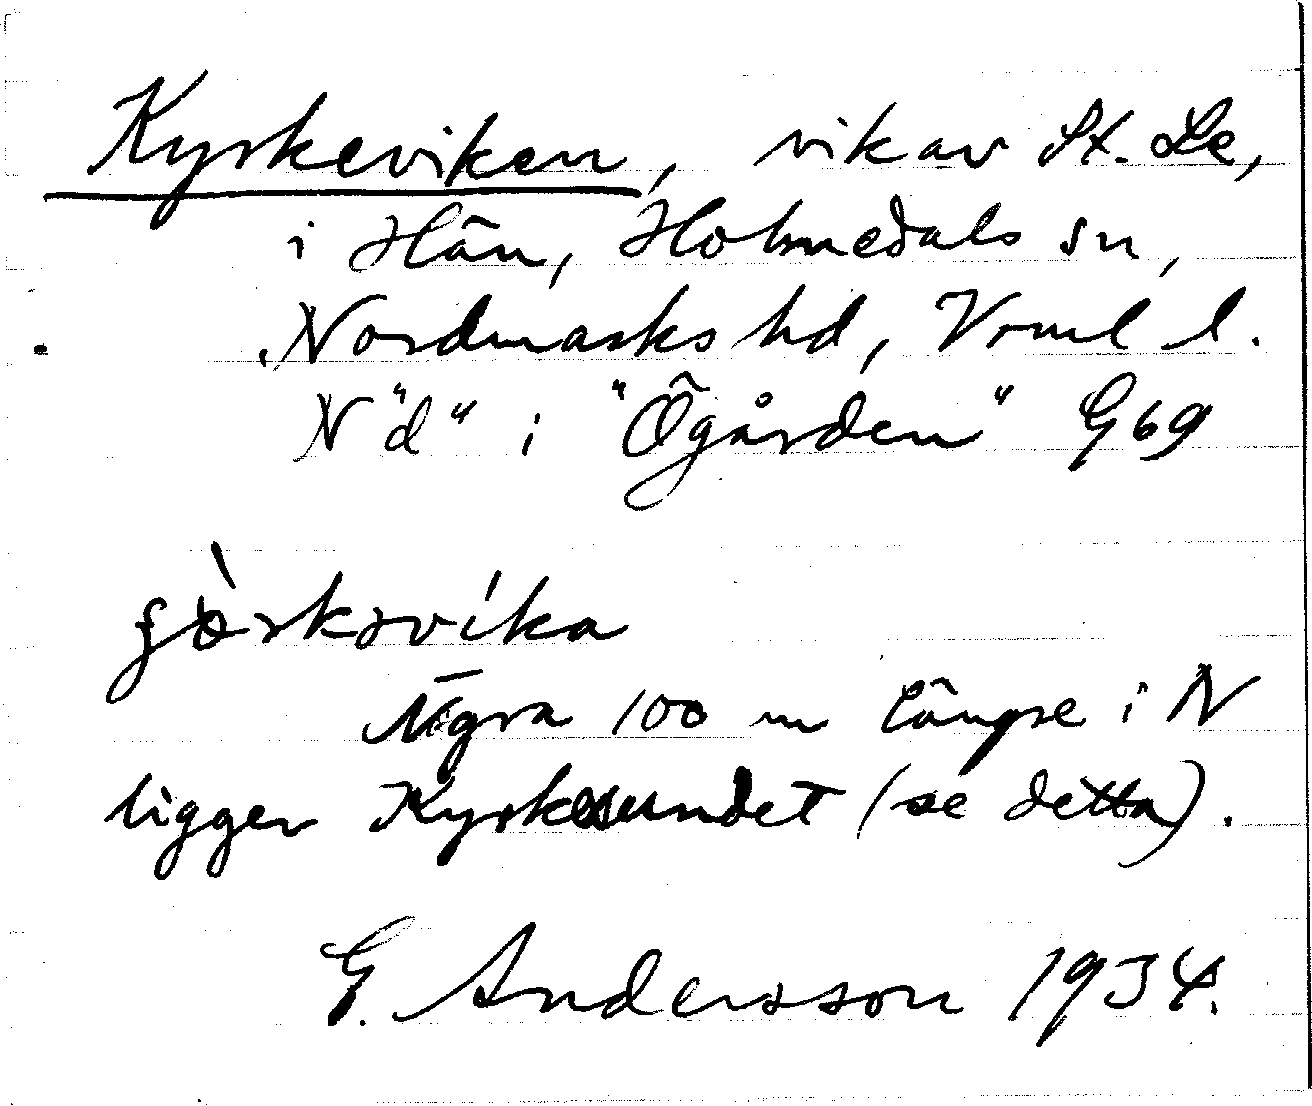 Kyrkeviken, vik av St. Le,
i Hån, Holmedals sn,
Nordmarks hd, Vrml l.
N "d" i "Ögården" G69
Några 100 m längre i N
ligger Kyrkesundet (se detta).
G. Andersson 1934.